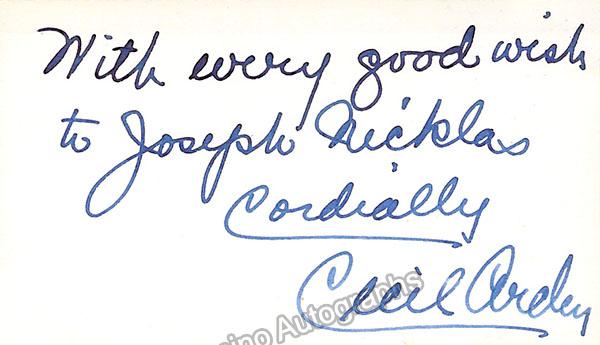 With every good wish
to Joseph Nicklas
Cordially
Cecil Arden
Autographs